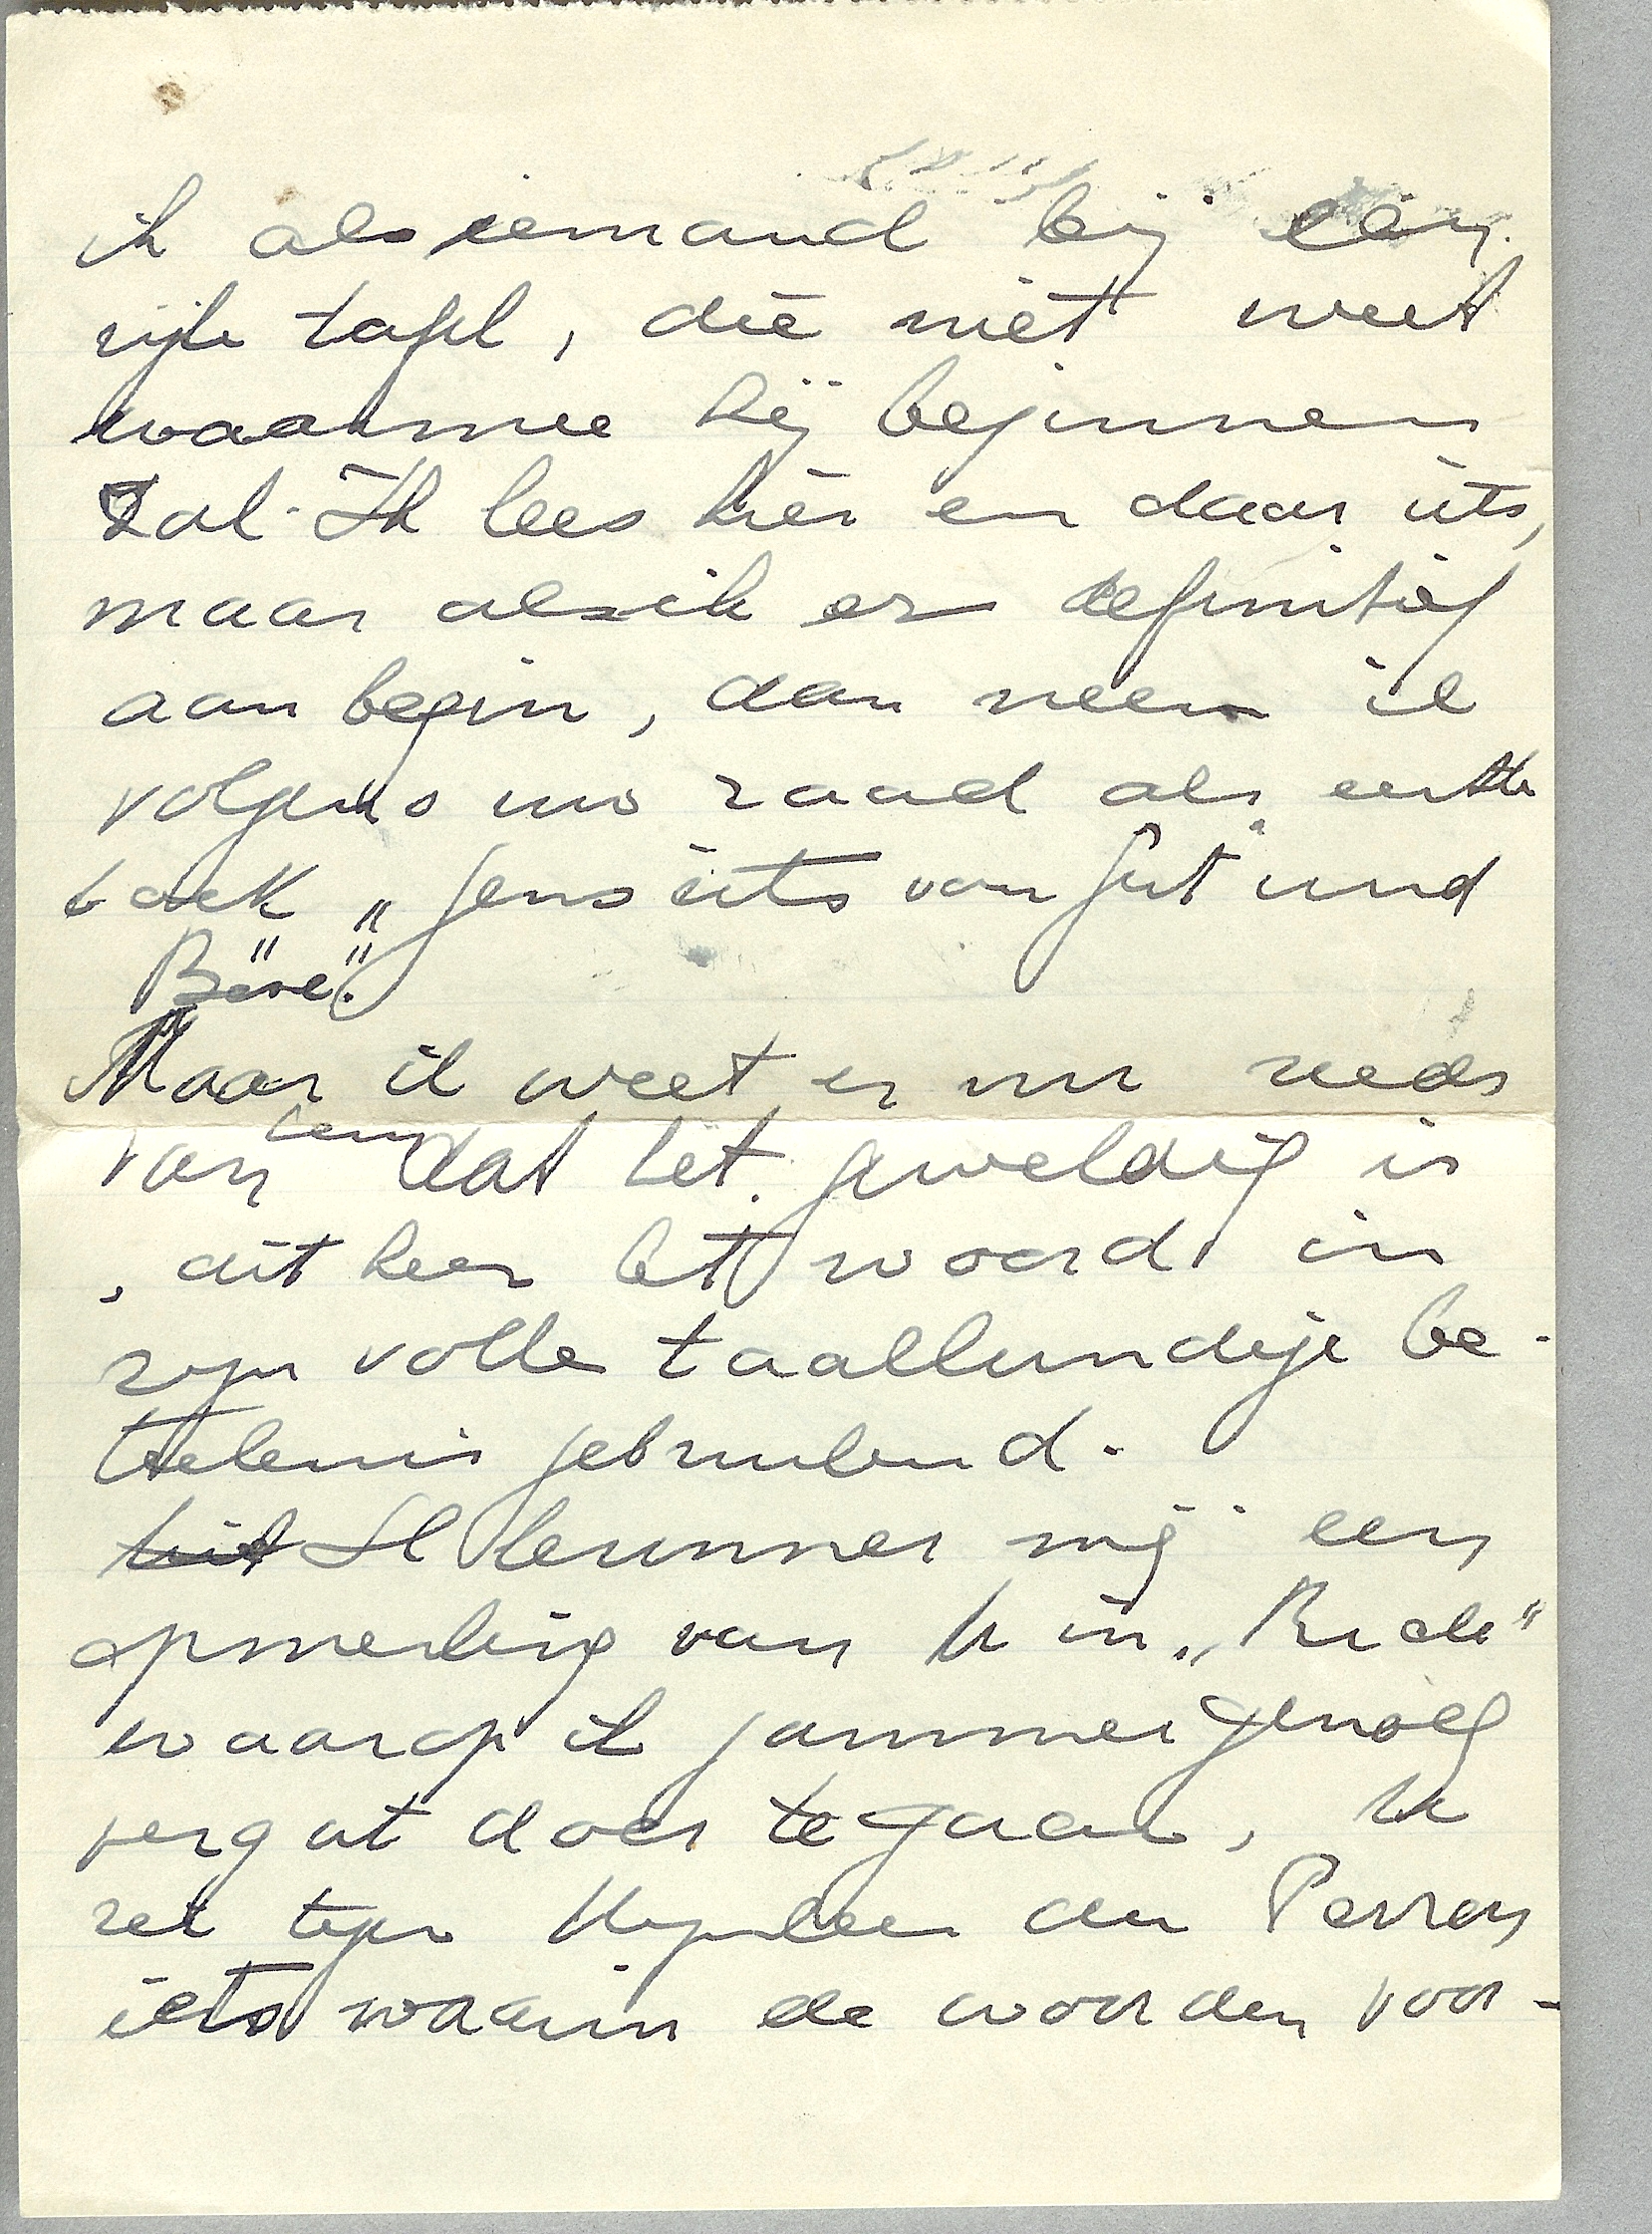 ik als iemand bij een
rijke tafel, die niet weet
waarmee hij beginnen
zal. Ik lees hier en daar iets,
maar als ik er definitief
aan begin, dan neem ik
volgens uw raad als eerste
boek „Jenseits von Gut und
Böse".
Maar ik weet er nu reeds
van dat het geweldig is
, dit keer het woord in
zijn volle taalkundige be-
teekenis gebruikend.
Ik herinner mij een
opmerking van U in „Riche"
waarop ik jammer genoeg
vergat door te gaan, U
zei tegen den Perron
iets waarin de woorden voor-